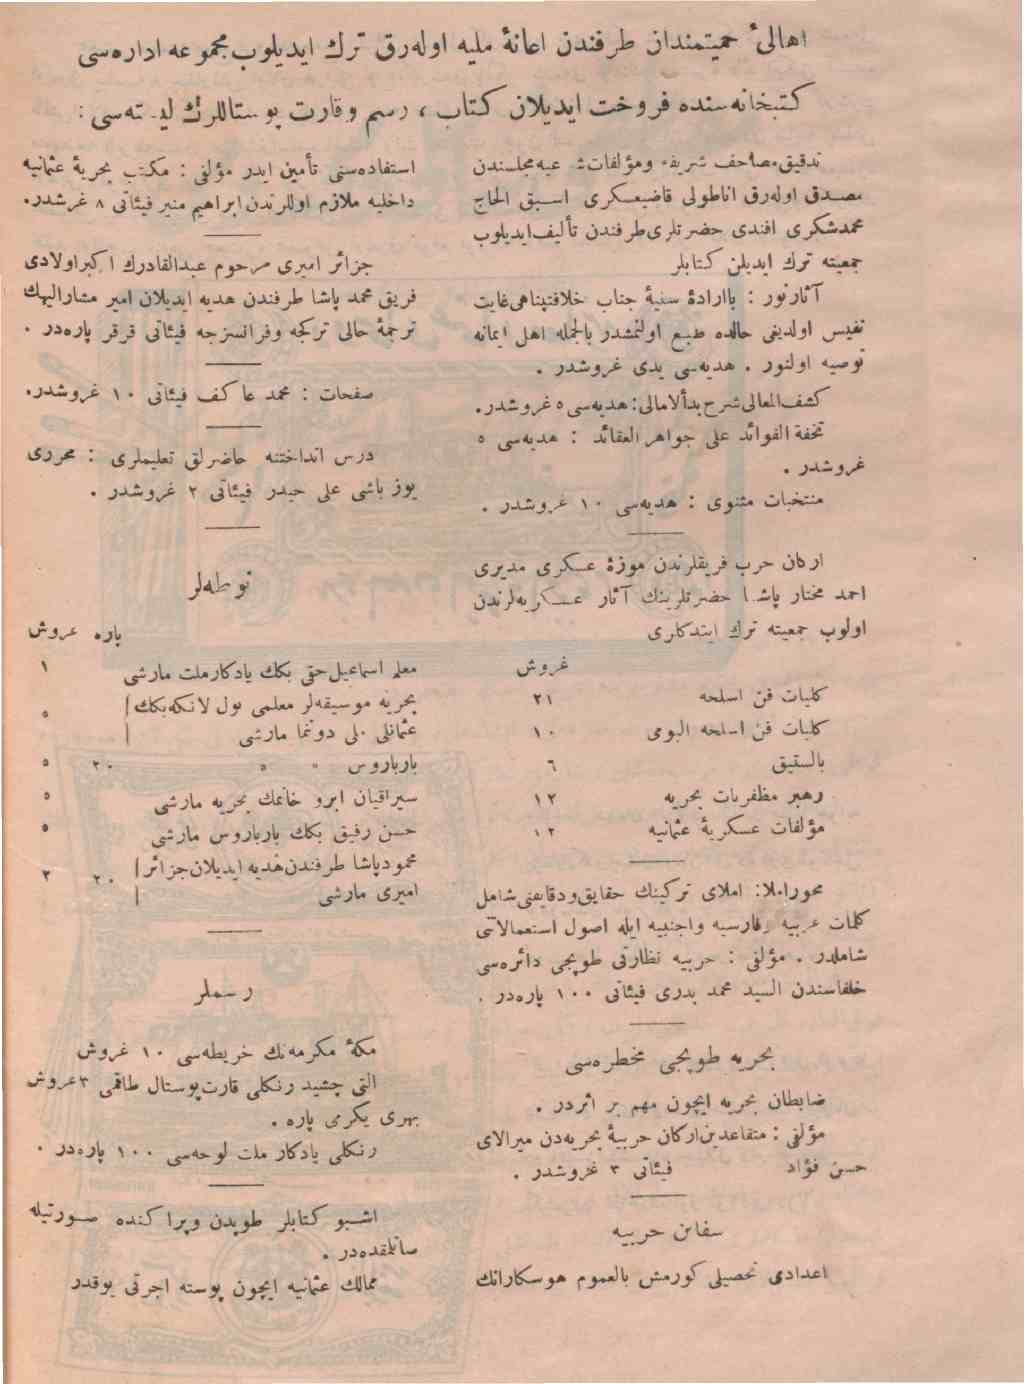 اهالئ حميتمندان طرفندن اعانهٔ مليه اوله‌رق ترك ايديلوب مجموعه اداره‌سى
كتبخانه‌سنده فروخت ايديلان كتاب ، رسم وقارت پوستاللرك ليسته‌سى :
تدقيق مصاحف شريفه ومؤلفات شرعيه مجلسندن
مصدق اوله‌رق اناطولى قاضيعسكرى اسبق الحاج
محمدشكرى افندى حضرتلرى طرفندن تأليف ايديلوب
جمعيته ترك ايديلن كتابلر
آثارنور : باارادهٔ سنيهٔ جناب خلافتپناهى غايت
نفيس اولديغى حالده طبع اولنمشدر بالجمله اهل ايمانه
توصيه اولنور . هديه‌سى يدى غروشدر .
كشف المعالى شرح بدأ لامالى : هديه‌سى ٥ غروشدر.
تحفة الفوائد على جواهر العقائد : هديه‌سى ٥
غروشدر .
منتخبات مثنوى : هديه‌سى ١٠ غروشدر .
اركان حرب فريقلرندن موزهٔ عسكرى مديرى
احمد مختار پاشا حضرتلرينك آثار عسكريه‌لرندن
اولوب جمعيته ترك ايتدكلرى
غروش
كليات فن اسلحه ٢١
كليات فن اسلحه البومى ١٠
بالستيق ٦
رهبر مظفريات بحريه ١٢
مؤلفات عسكريهٔ عثمانيه ١٢
محوراملا : املاى تركينك حقايق ودقايقنى شامل
كلمات عربيه وفارسيه واجنبيه ايله اصول استعمالاتى
شاملدر . مؤلفى : حربيه نظارتى طوپجى دائره‌سى
خلفاسندن السيد محمد بدرى فيئاتى ١٠٠ پاره‌در .
بحريه طوپجى مخطره‌سى
ضابطان بحريه ايچون مهم بر اثردر .
مؤلفى : متقاعدين اركان حربيهٔ بحريه‌دن ميرالاى
حسن فؤاد فيئاتى ٣ غروشدر .
سفائن حربيه
اعدادى تحصيلى كورمش بالعموم هوسكارانك
استفاده‌سنى تأمين ايدر مؤلفى : مكتب بحريهٔ عثمانيه
داخليه ملازم اوللرندن ابراهيم منير فيئاتى ٨ غرشدر.
جزائر اميرى مرحوم عبدالقادرك اكبر اولادى
فريق محمد پاشا طرفندن هديه ايديلان امير مشاراليهك
ترجمهٔ حالى تركجه وفرانسزجه فيئاتى قرقر پاره‌در .
صفحات : محمد عاكف فيئاتى ١٠ غروشدر.
درس انداختنه حاضرلق تعليملرى : محررى
يوز باشى على حيدر فيئاتى ٢ غروشدر .
نوطه‌لر
پاره غروش
معلم اسماعيل حقى بكك يادكار ملت مارشى ١
بحريه موسيقه‌لر معلمى پول لانكه بكك
عثمانلى ملى دوننما مارشى ٥
بارباروس » » ٢٠ ٥
سيراقيان ابرو خانمك بحريه مارشى ٥
حسن رفيق بكك بارباروس مارشى ٥
محمودپاشا طرفندن هديه ايديلان جزائر
اميرى مارشى ٢٠ ٢
رسملر
مكهٔ مكرمه‌نك خريطه‌سى ١٠ غروش
التى چشيد رنكلى قارت پوستال طاقمى ٣ غروش
بهرى يكرمى پاره .
رنكلى يادكار ملت لوحه‌سى ١٠٠ پاره‌در .
اشبو كتابلر طوپدن وپراكنده صورتيله
صاتلمقده‌در .
ممالك عثمانيه ايچون پوسته اجرتى يوقدر